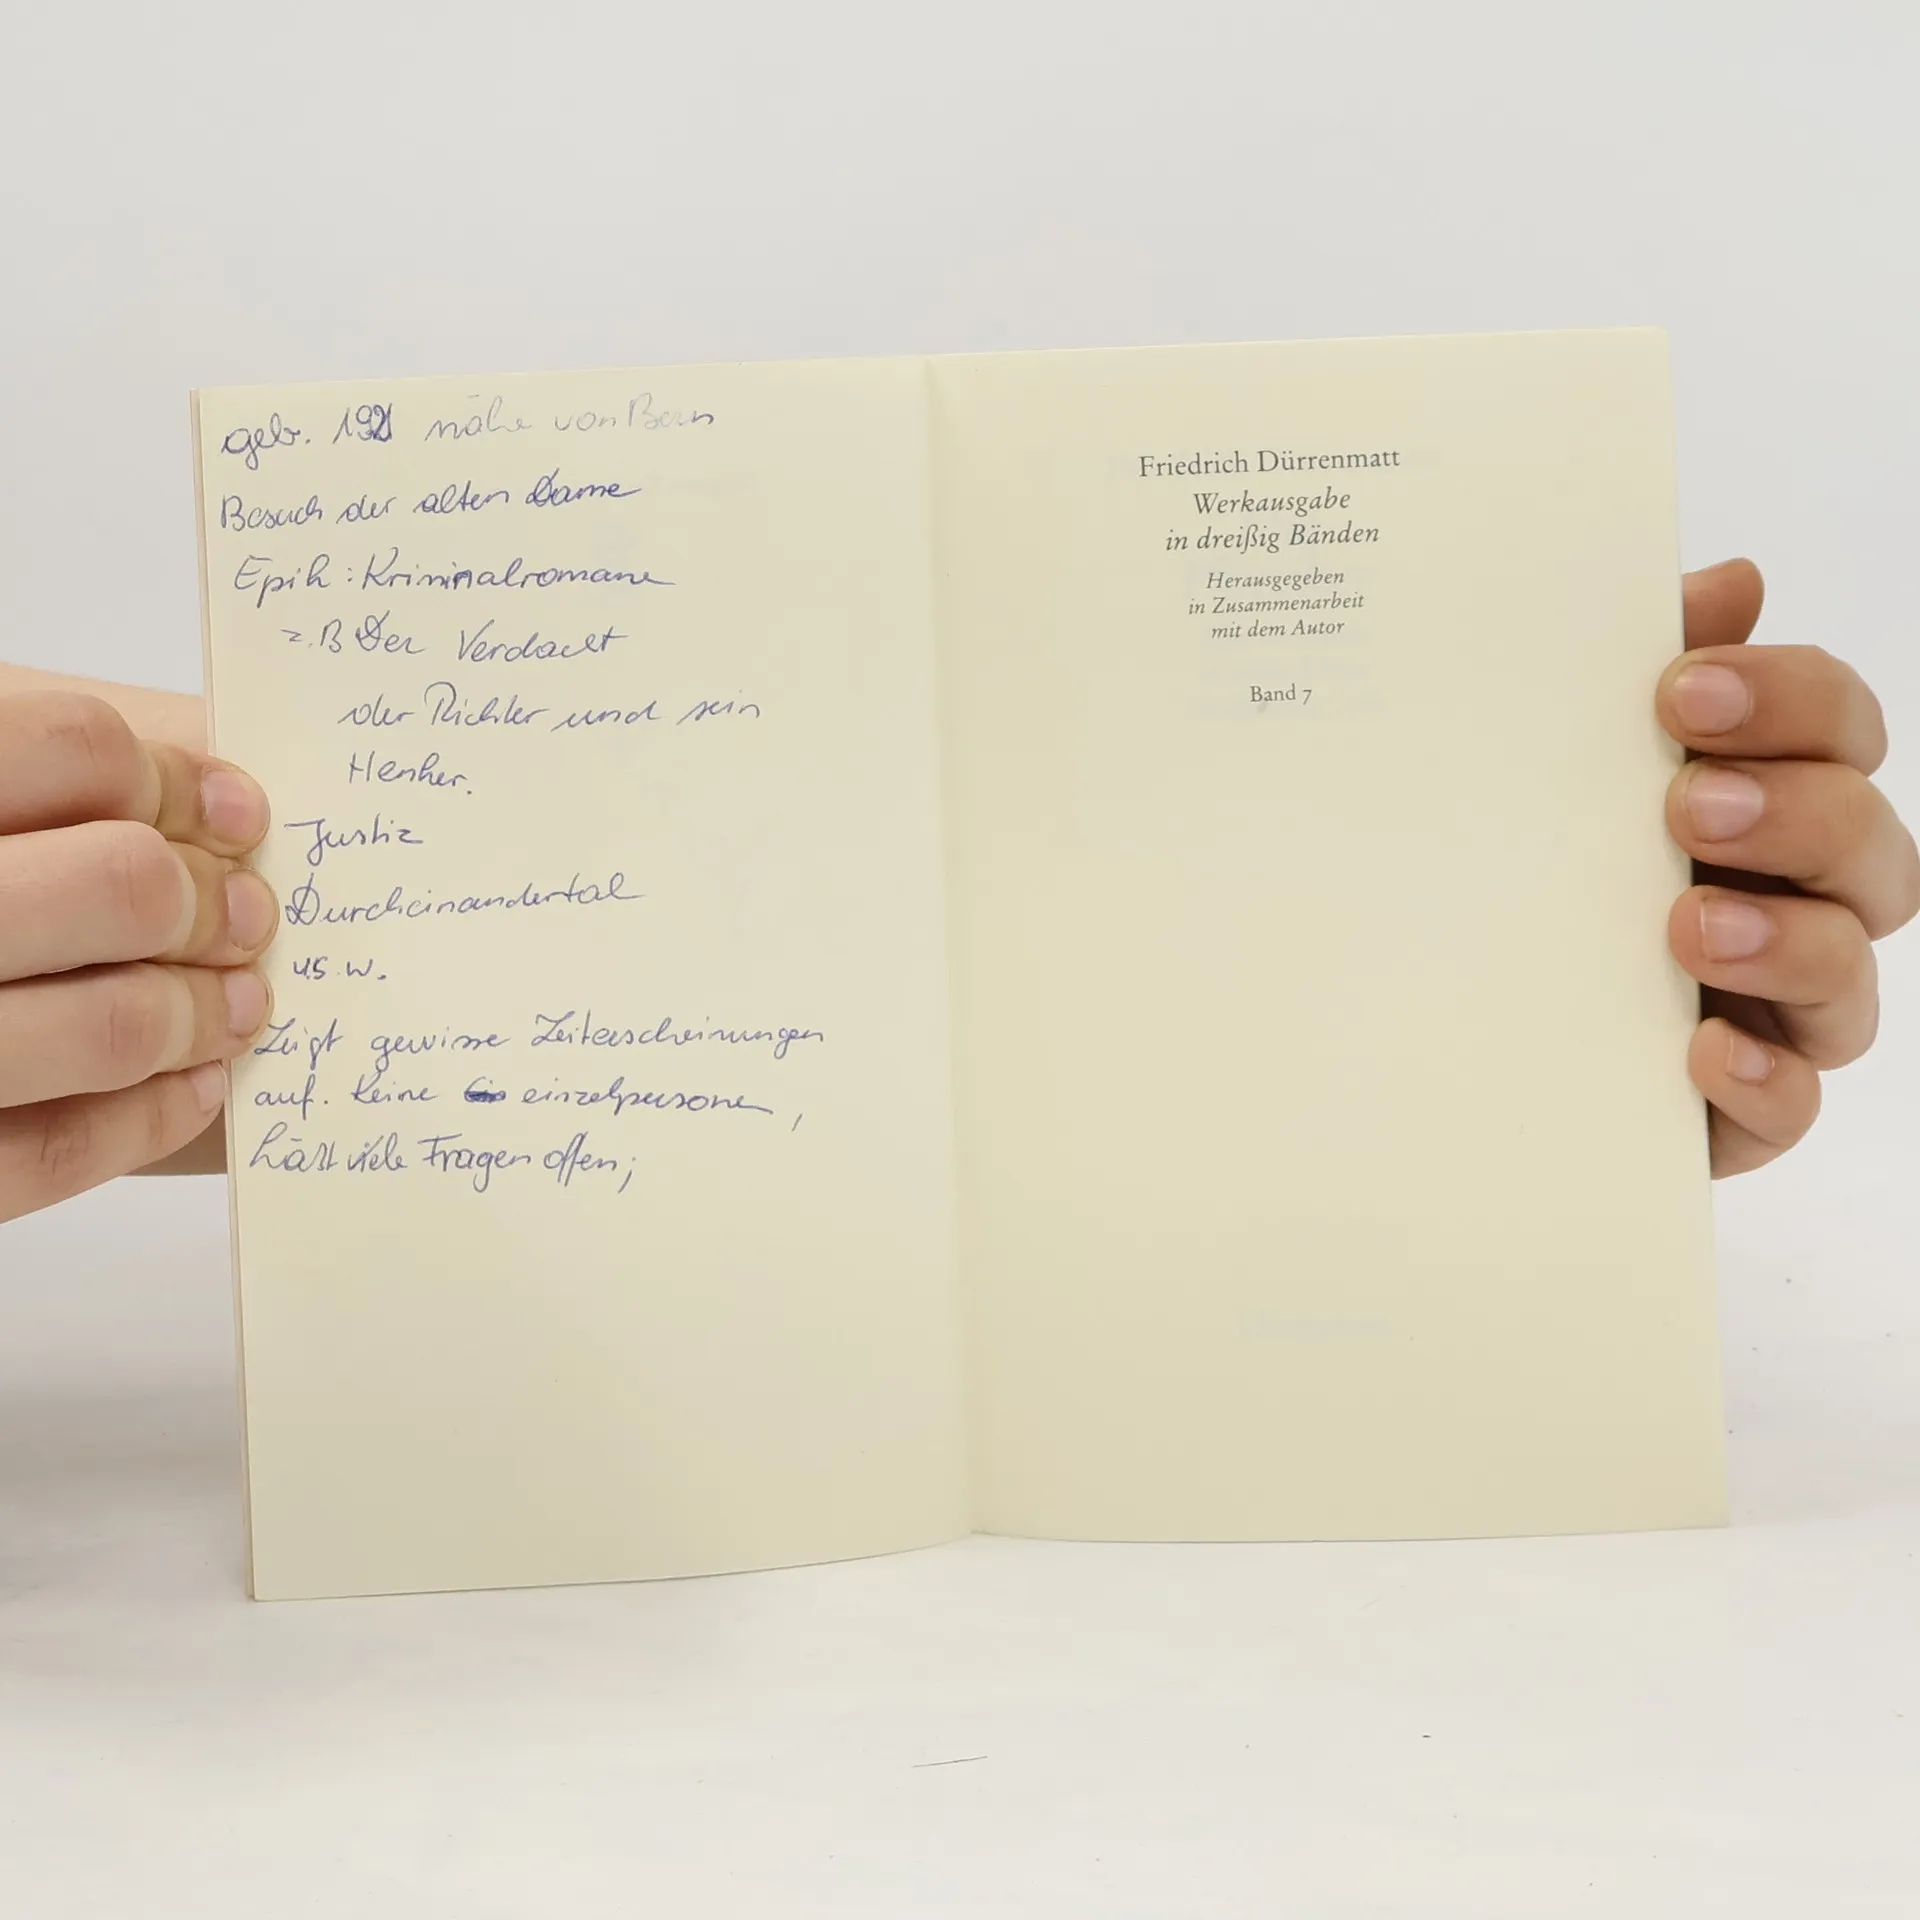 geb. 1921 nähe von Bern
Besuch der alten Dame
Epik : Kriminalromane
z.B Der Verdacht
der Richter und sein
Henker.
Justiz
Durcheinandertal
u.s.w.
Zeigt gewisse Zeiterscheinungen
auf. Keine einzelpersonen,
Läßt viele Fragen offen;
Friedrich Dürrenmatt
Werkausgabe
in dreißig Bänden
Herausgegeben
in Zusammenarbeit
mit dem Autor
Band 7